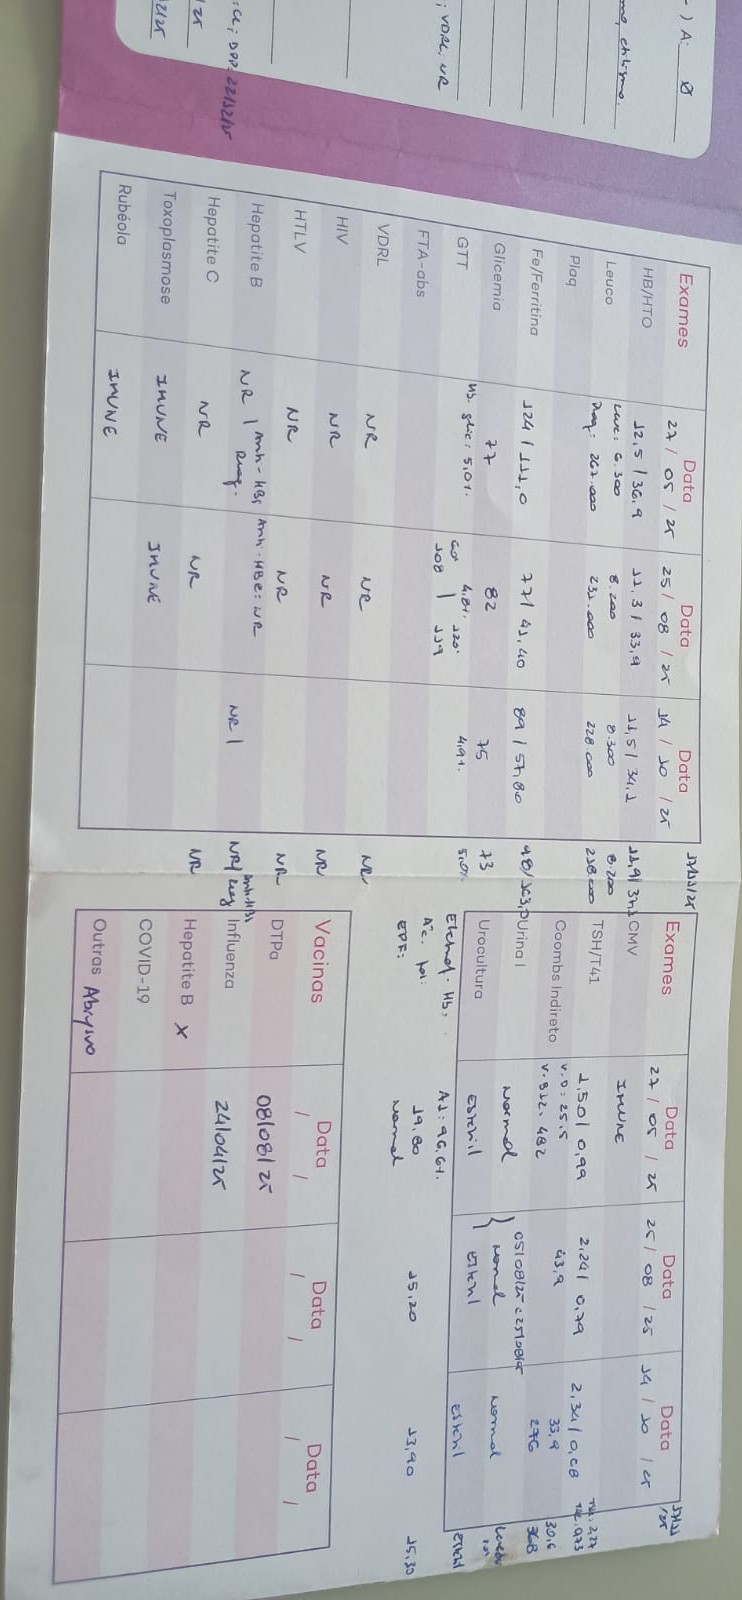 ) A: Ø
etilismo.
; VDRL: NR
DPP: 22/12/25
Exames Data Data Data
27 / 05 / 25 25 / 08 / 25 14 / 10 / 25 17/11/25
HB/HTO 12,5 / 36,9 11,3 / 33,9 11,5 / 34,1
Leuco Leuc: 6.300 8.200 8.300 8.200
Plaq Plaq: 267.000 232.000 228.000 238.000
Fe/Ferritina 124 / 111,0 77 / 41,40 89 / 57,80
Glicemia 77 82 75 73
GTT Hb. glic: 5,0%. 4,8%. 120' 4,9%. 5,0%.
108 | 119
FTA-abs
VDRL NR NR NR
HIV NR NR NR
HTLV NR NR NR
Hepatite B NR | Anti-HBs Reag. Anti-HBc: NR NR | NR/
Hepatite C NR NR NR
Toxoplasmose IMUNE IMUNE
Rubéola IMUNE
Exames Data Data Data
27 / 05 / 25 25 / 08 / 25 14 / 10 / 25 17/11/25
CMV IMUNE
TSH/T4l 1,50 / 0,99 2,24 / 0,79 2,34 / 0,68
Coombs Indireto V.D: 25,5 43,9 33,9 30,6
V. B12: 482 276 368
Urina I Normal 05/08/25 e 25/08/25 Normal Normal
Urocultura Estéril Estéril Estéril Estéril
Eletrof. Hb: A1: 96,6%.
Ac. fol: 19,80 15,20 13,90 15,30
EPF: Normal
Vacinas Data Data Data
/ / / / / /
DTPa 08/08/25
Influenza 24/04/25
Hepatite B X
COVID-19
Outras Abrysvo